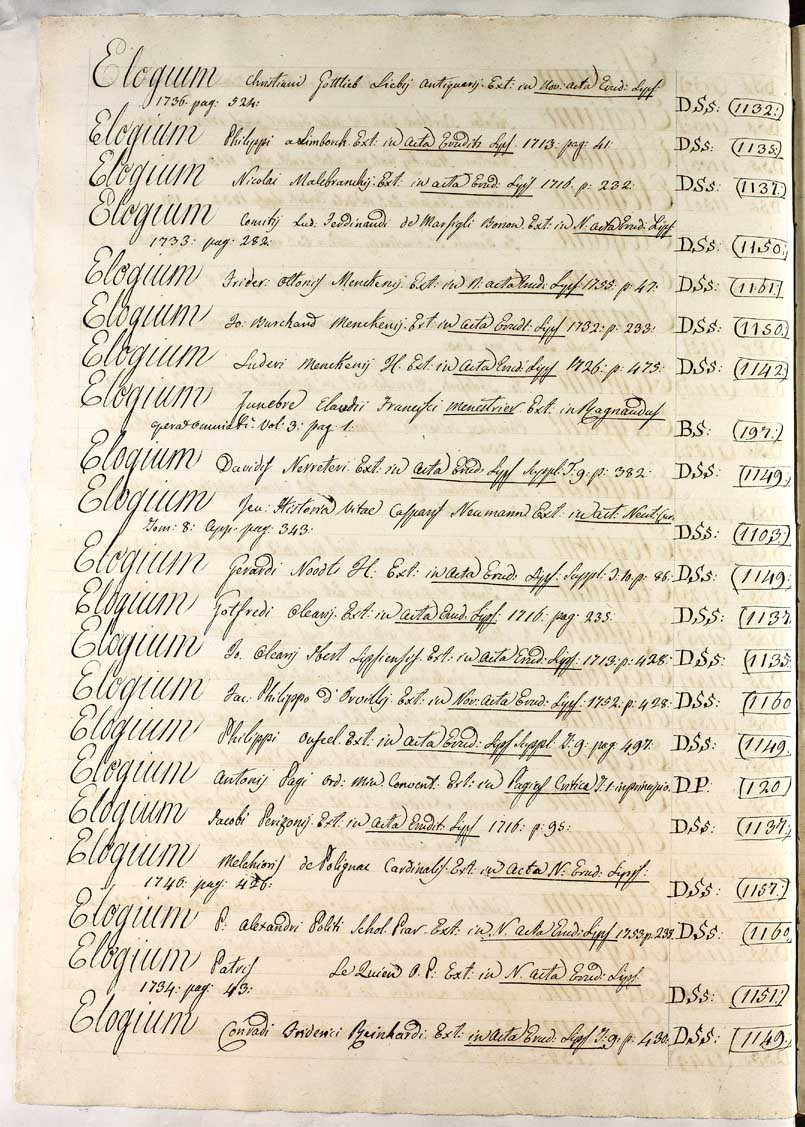 Elogium Christiani Gottlieb Liebij Antiquarij. Ext: in Nov: Acta Erud: Lyps:
1736. pag: 524: D.Ss: (1132:)
Elogium Philippi a Limborch. Ext: in Acta Erudit: Lyps. 1713: pag: 41: D.Ss: (1135:)
Elogium Nicolai Malebranchij. Ext: in acta Erud: Lyps 1716. p: 232: D.Ss: (1137:)
Elogium Comitis Lud: Ferdinandi de Marsigli Bonon. Ext: in N. acta Erud: Lyps
1733: pag: 282: D.Ss: (1150:)
Elogium Frider: Ottonis Menckenij. Ext: in N. acta Erud: Lyps: 1755. p: 47: D.Ss: (1161:)
Elogium Jo: Burchard Menckenij. Ext: in Acta Erudt: Lyps 1732: p: 233: D.Ss: (1150:)
Elogium Luderi Menckenij H. Ext: in Acta Erud: Lyps 1726: p: 475: D.Ss: (1142:)
Elogium Funebre Claudii Francisci menestrier Ext: in Raynaudus
opera omnia: Vol: 3: pag 1: B.S: (197:)
Elogium Davidis Nerreteri. Ext: in Acta Erud: Lyps Suppl: T: 9: p: 382: D.Ss: (1149:)
Elogium seu: Historia Vitae Casparis Neumann Ext: in Act: Nat: Cur:
Tom: 8: App: pag: 343: D.Ss: (1103:)
Elogium Gerardi Noodts H. Ext: in Acta Erud: Lyps: Suppl: T: 10. p: 86: D.Ss: (1149:)
Elogium Gotfredi Olearij. Ext: in Acta Erud: Lyps: 1716: pag: 235: D.Ss: (1137
Elogium Jo. Olearij Lypsiensis. Ext: in Acta Erud: Lyps: 1713: p: 428: D.Ss: (1135:
Elogium Jac: Philippo d'Orvillij. Ext: in Nov: Acta Erud: Lyps: 1752: p: 428: D.Ss: (1160
Elogium Philippi Ouseel Ext: in Acta Erud: Lyps Suppl: T: 9. pag: 497: D.Ss: (1149:
Elogium Antonij Pagi Ord: Min: Convent: Ext: in Pagius Critica T: 1. in principio. D.P: (120)
Elogium Jacobi Perizonij. Ext: in acta Erudit: Lyps 1716: p: 95: D.Ss: (1137:
Elogium Melchioris de Polignac Cardinalis. Ext: in Acta N: Erud: Lyps:
1746: pag: 426: D.Ss: (1157:)
Elogium P: Alexandri Politi Schol. Piar. Ext: in N. Acta Erud: Lyps 1753. p: 235: D.Ss: (1160
Elogium Patris Le Quien O. P: Ext: in N. Acta Erud: Lyps:
1734: pag: 43: D.Ss: (1151:)
Elogium Conradi Friderici Reinhardi. Ext: in Acta Erud: Lyps T: 9: p: 430: D.Ss: (1149:)